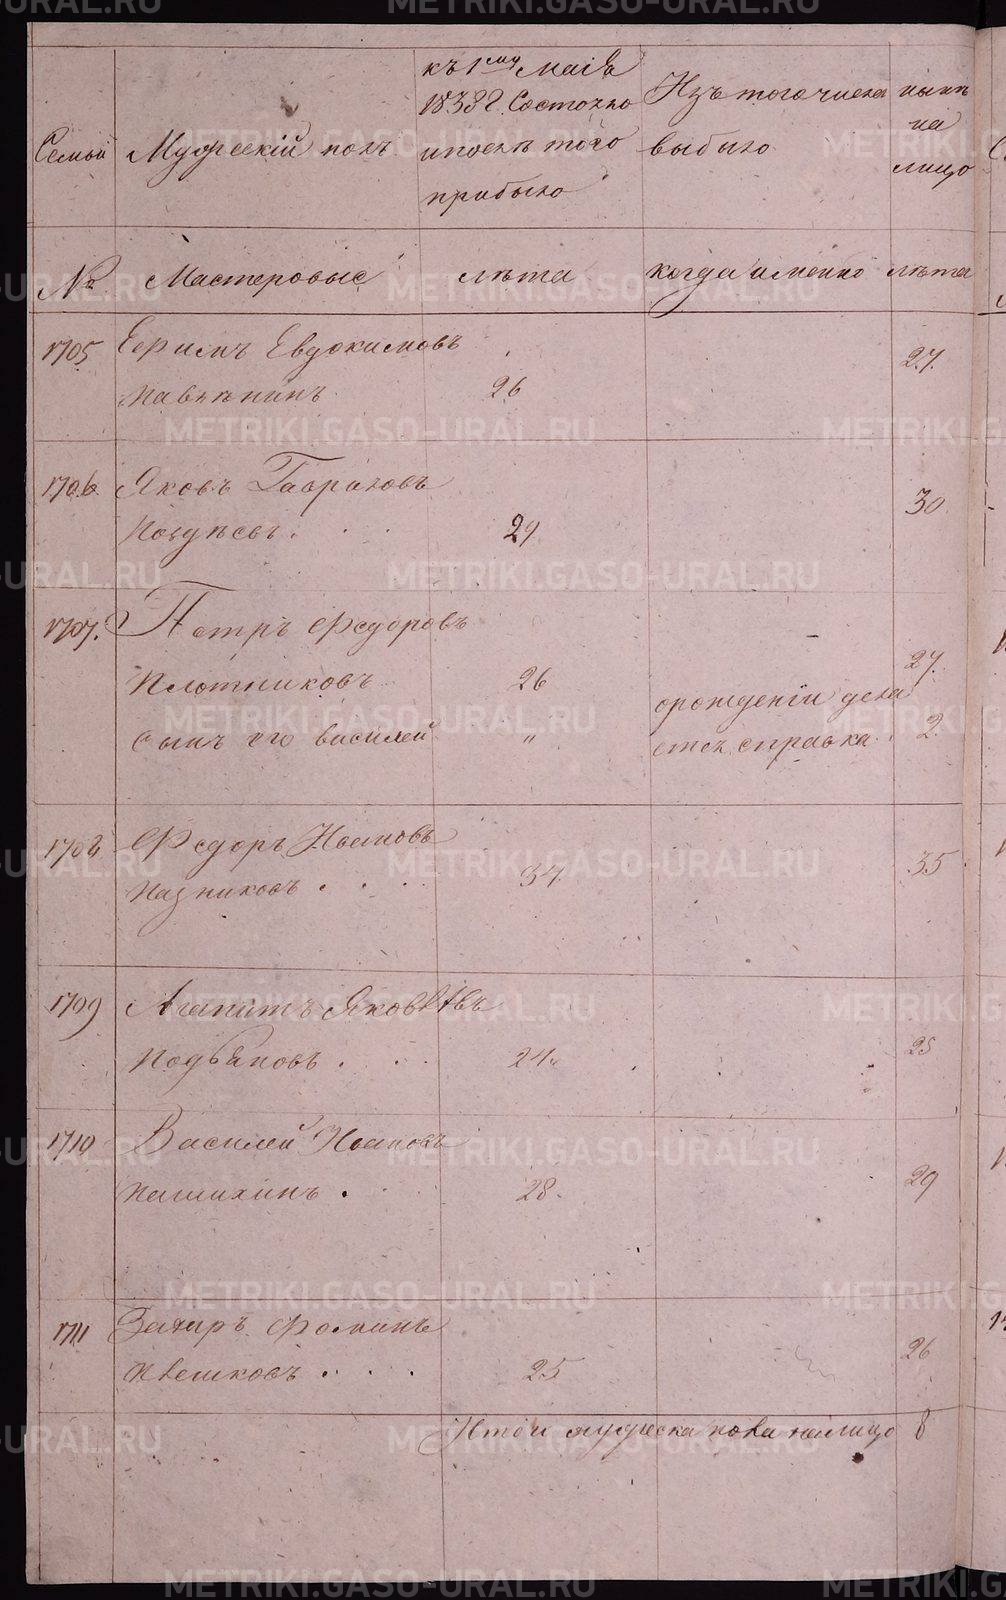 Семьи
Мужескій полъ
къ 1му Маія
1838г. Состояло
и после того
прибыло
Изъ того числа
выбыло
ныне
на
лицо
№
Мастеровые
лѣта
когда именно
лѣта
1705
Ефимъ Евдокимовъ
26
27.
1706
Яковъ Гавриловъ
Поздѣевъ . . .
29
30
1707.
Петръ Федоровъ
Плотниковъ
26
27.
сынъ его василей
"
о рождении дела
ется справка
2
1708
Федоръ Ивановъ
Казниковъ . . .
34.
35
1709
Агапитъ Яковлевъ
. . .
24.
25
1710
Василей Ивановъ
28.
29
1711
Захаръ Фоминъ
Ивешковъ . . .
25
26
Итого мужеска пола налицо 8
METRIKI.GASO-URAL.RU